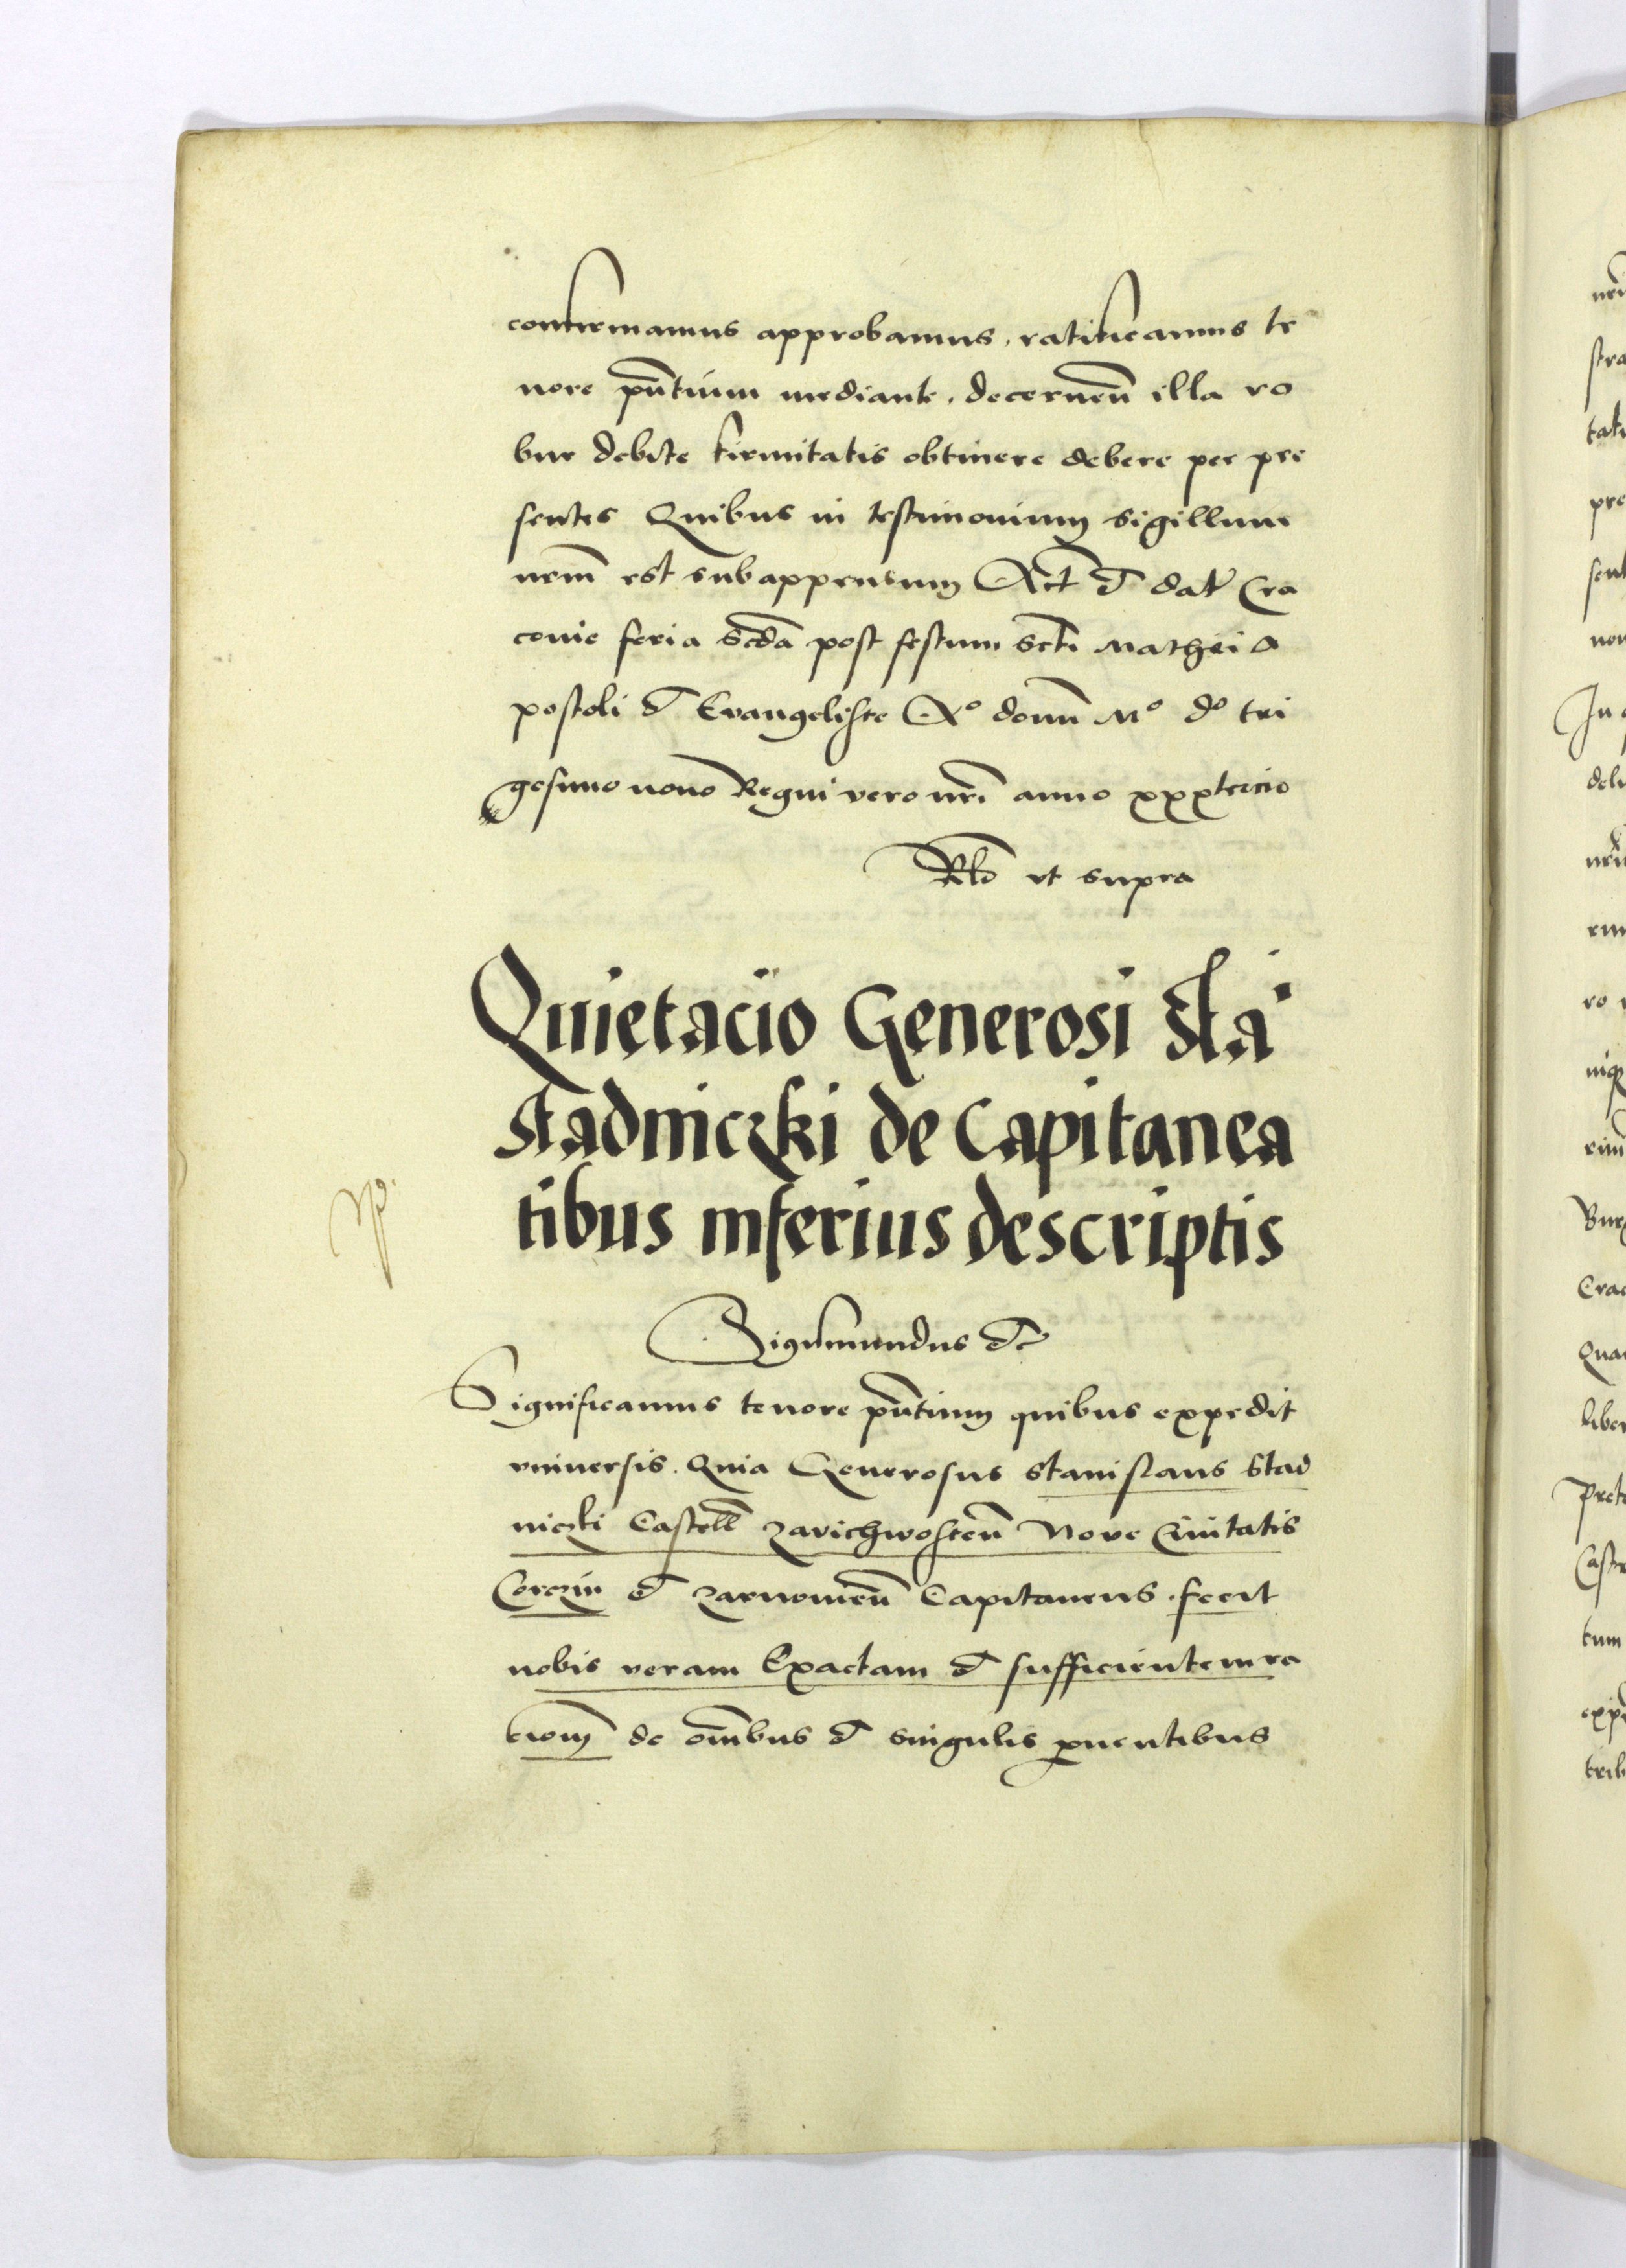 confirmamus approbamus, ratificamus te
nore pñtium mediante. decerneñ illa ro
bur debite firmitatis obtinere debere per pre
sentes Quibus in testimonium sigillum
nrm̃ est subappensum Act̃ et dat̃ Cra
covie feria Scdã post festum Scti Mathei A
postoli et Evangeliste Aº domĩ Mº dº tri
gesimo nono Regni vero nrĩ anno xxxtercio
Rlõ vt supra
Quietacio Generosi Sta
Stadniczki de Capitanea
tibus inferius descriptis
Sigismundus etc
Significamus tenore pñtium quibus expedit
vniuersis. Quia Generosus Stanislaus Stad
niczki Castell̃ Zavichwosteñ Nove Ciuitatis
Corczin et Zarnovieñ Capitaneus. fecit
nobis veram Exactam et sufficientem ra
tionẽ de oñibus et singulis ꝓuentibus